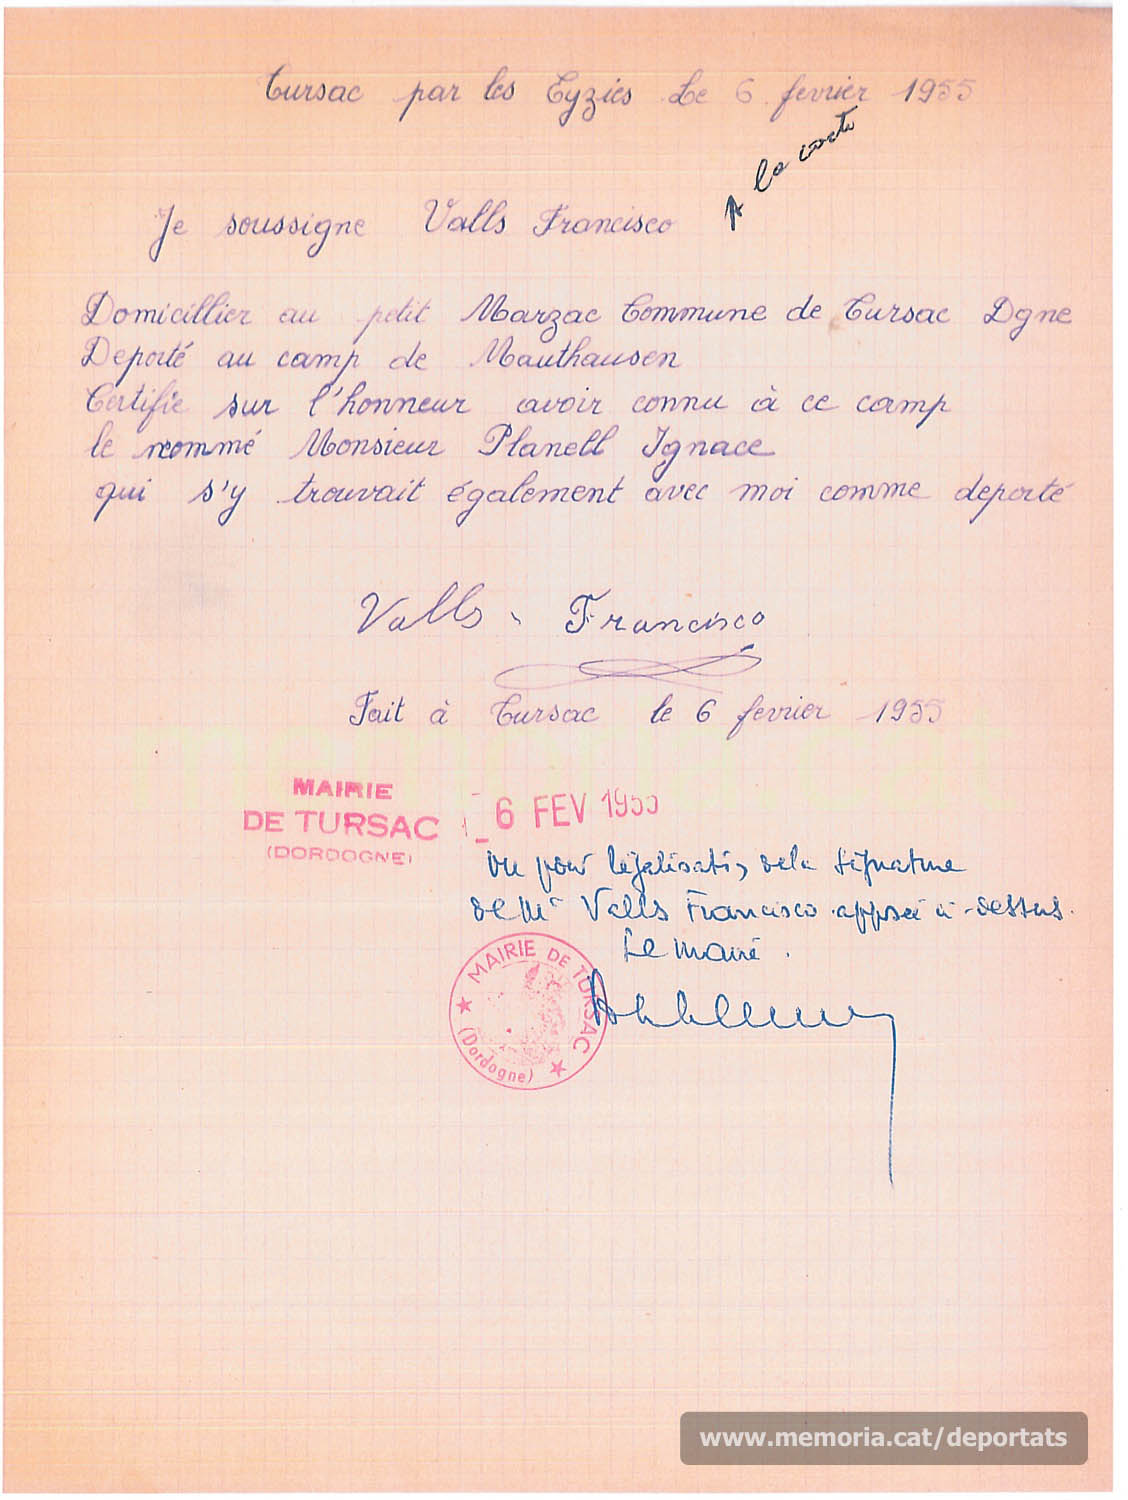 Tursac par les Eyzies Le 6 fevrier 1955
A la carte
Je soussigne Valls Francisco
Domicillier au petit Marzac Commune de Tursac Dgne
Deporté au camp de Mauthausen
Certifie sur l'honneur avoir connu à ce camp
le nommé Monsieur Planell Ignace
qui s'y trouvait également avec moi comme deporté
Valls Francisco
Fait à Tursac le 6 fevrier 1955
MAIRIE
DE TURSAC
(DORDOGNE)
6 FEV 1955
Vu pour légalisation de la signature
de Mr Valls Francisco apposée ci-dessus.
Le Maire.
MAIRIE DE TURSAC
(Dordogne)
memoria.cat
www.memoria.cat/deportats